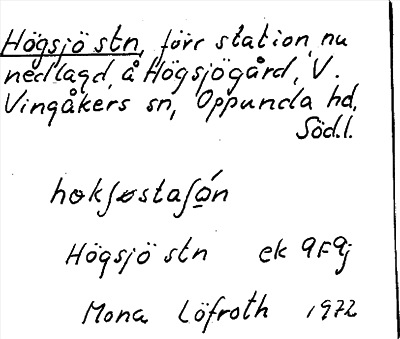 Högsjö stn, förr station, nu
nedlagd, å Högsjögård, V.
Vingåkers sn, Oppunda hd,
Söd.l.
hɵkʃɵstaʃɷ́n
Högsjö stn ek 9F9j
Mona Löfroth 1972